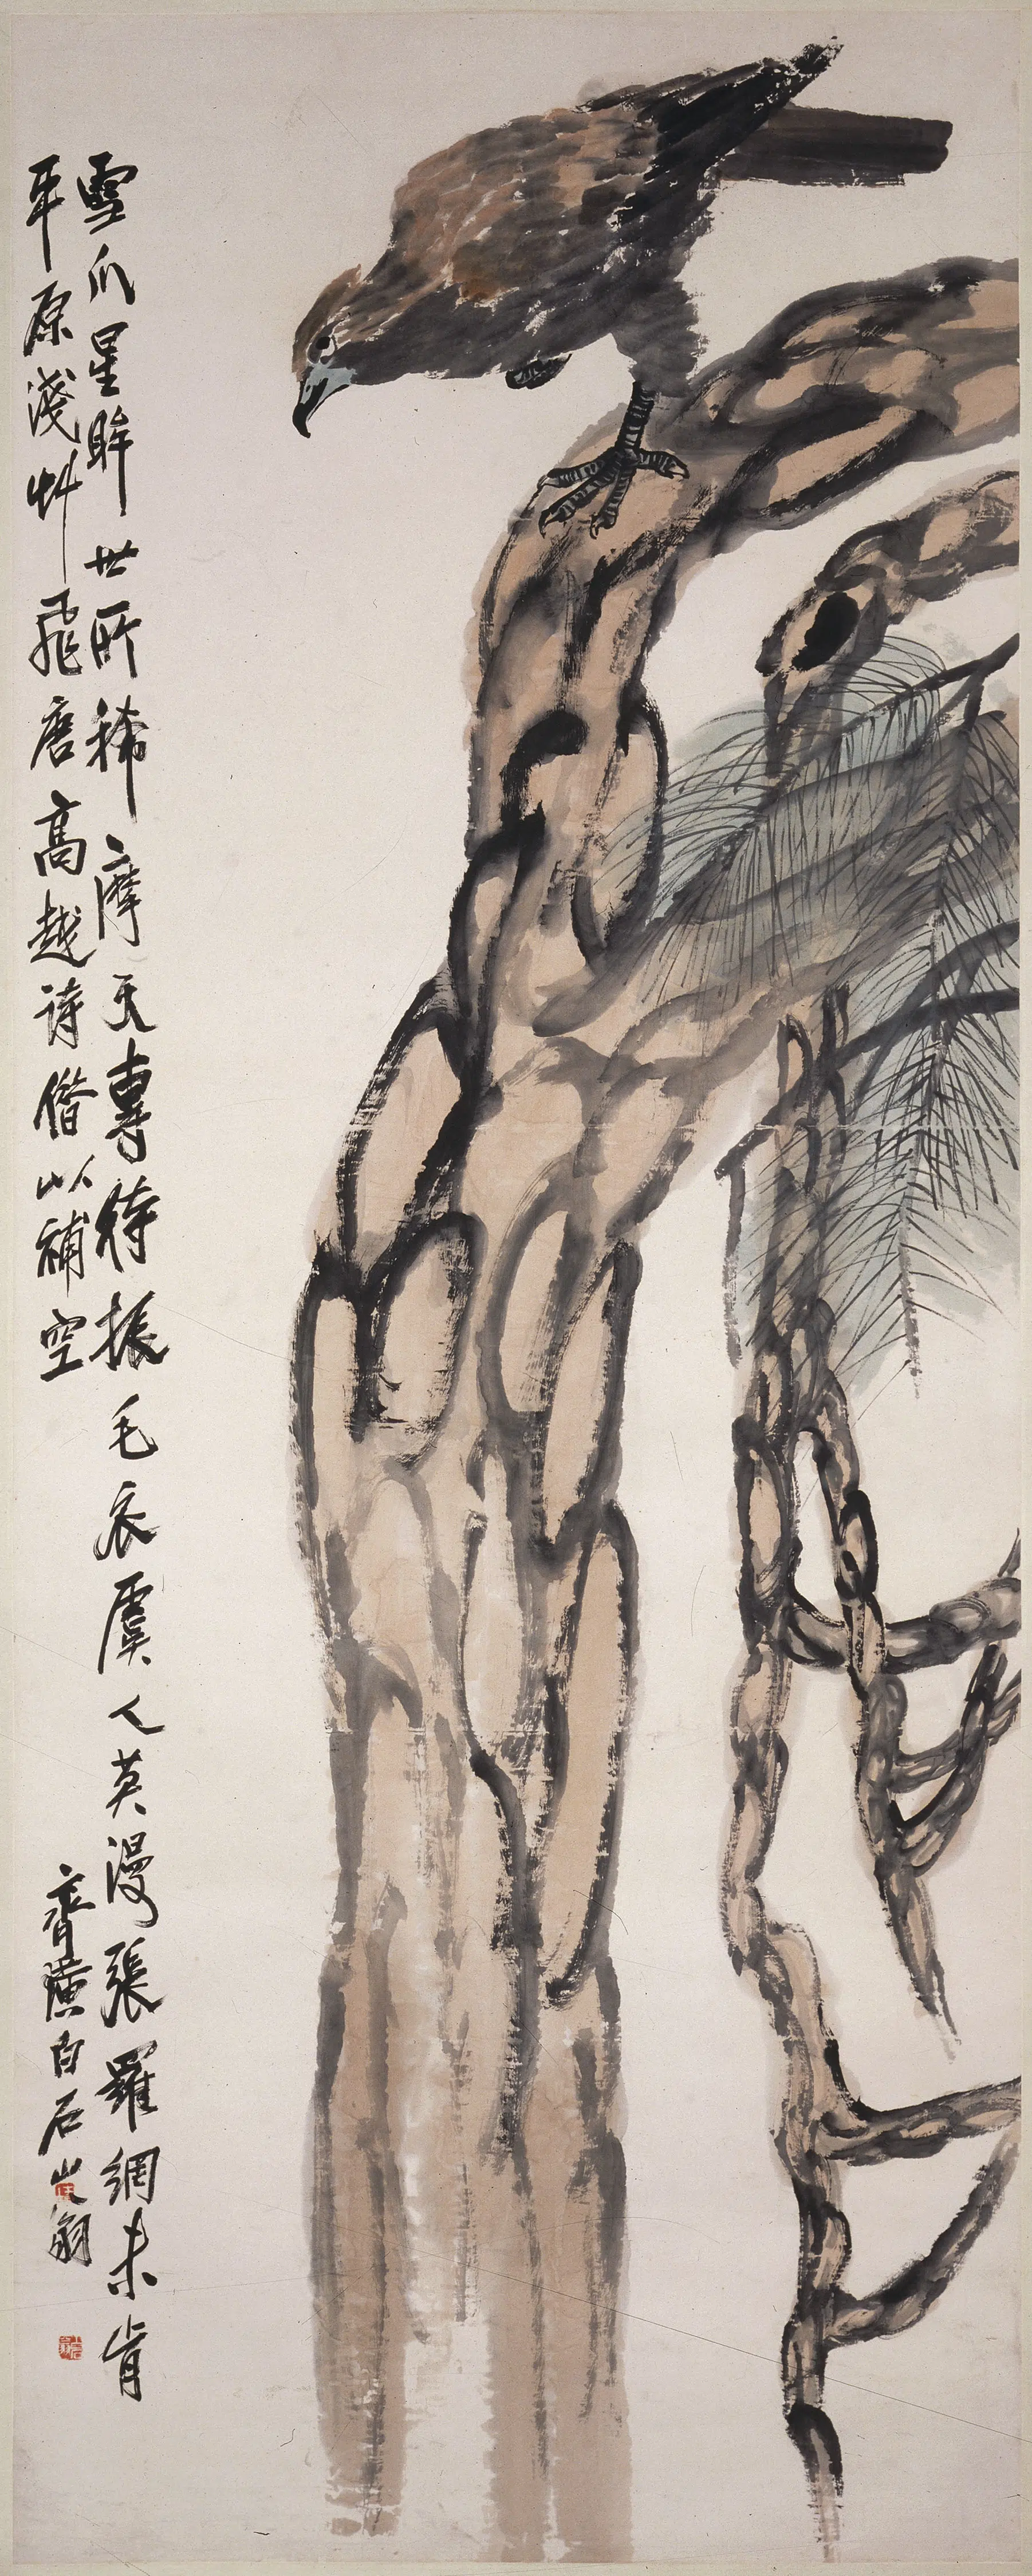 雪爪星眸世所稀摩天專待振毛衣虞人莫漫張羅網未肯
平原淺艸飛唐高越詩借以補空
齊璜白石山翁